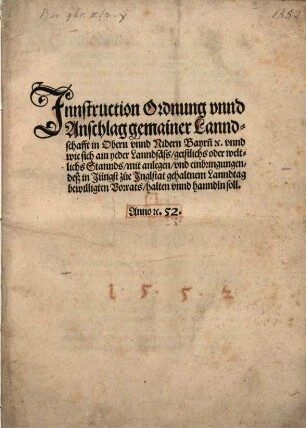 1352
Innstruction Ordnung vnnd
Anschlag gemainer Lannd-
schafft in Obern vnnd Nidern Bayrn ꝛc. vnnd
wie sich ain yeder Lanndsäss/geistlichs oder welt-
lichs Stannds/mit anlegen/vnd einbringungen/
deß in Jüngst zůe Inglstat gehaltnem Lanndtag
bewilligten Vorrats/halten vnnd hanndln soll.
Anno ꝛc. 52.
1 5 5 2